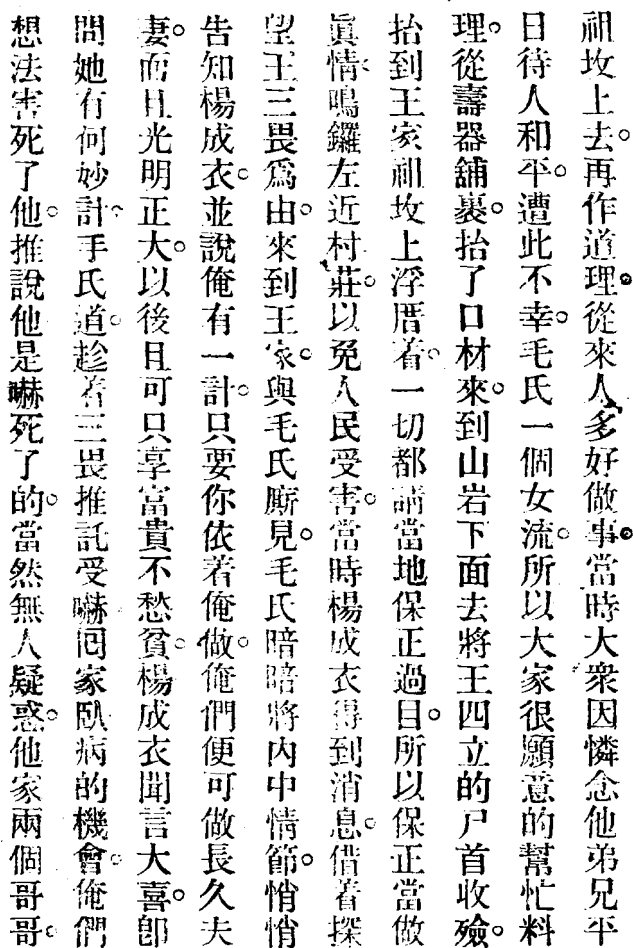 祖坟上去。再作道理。從來人多好做事。當時大衆因憐念他弟兄平
日待人和平。遭此不幸。毛氏一個女流。所以大家很願意的幫忙料
理。從壽器舖裹。抬了口材來。到山岩下面去將王四立的尸首收殮。
抬到王家祖坟上浮厝着。一切都請當地保正過目。所以保正當做
眞情。鳴鑼左近村莊。以免人民受害。當時楊成衣得到消息。借着探
望王三畏爲由。來到王家。與毛氏厮見。毛氏暗暗將內中情節。悄悄
告知楊成衣。並說俺有一計。只要你依着俺做。俺們便可做長久夫
妻。而且光明正大。以後且可只享富貴不愁貧。楊成衣聞言大喜。卽
問她有何妙計。手氏道。趁着三畏推託受嚇囘家臥病的機會。俺們
想法害死了他。推說他是嚇死了的。當然無人疑惑。他家兩個哥哥。